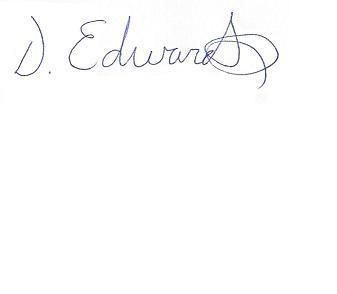 D. Edwards